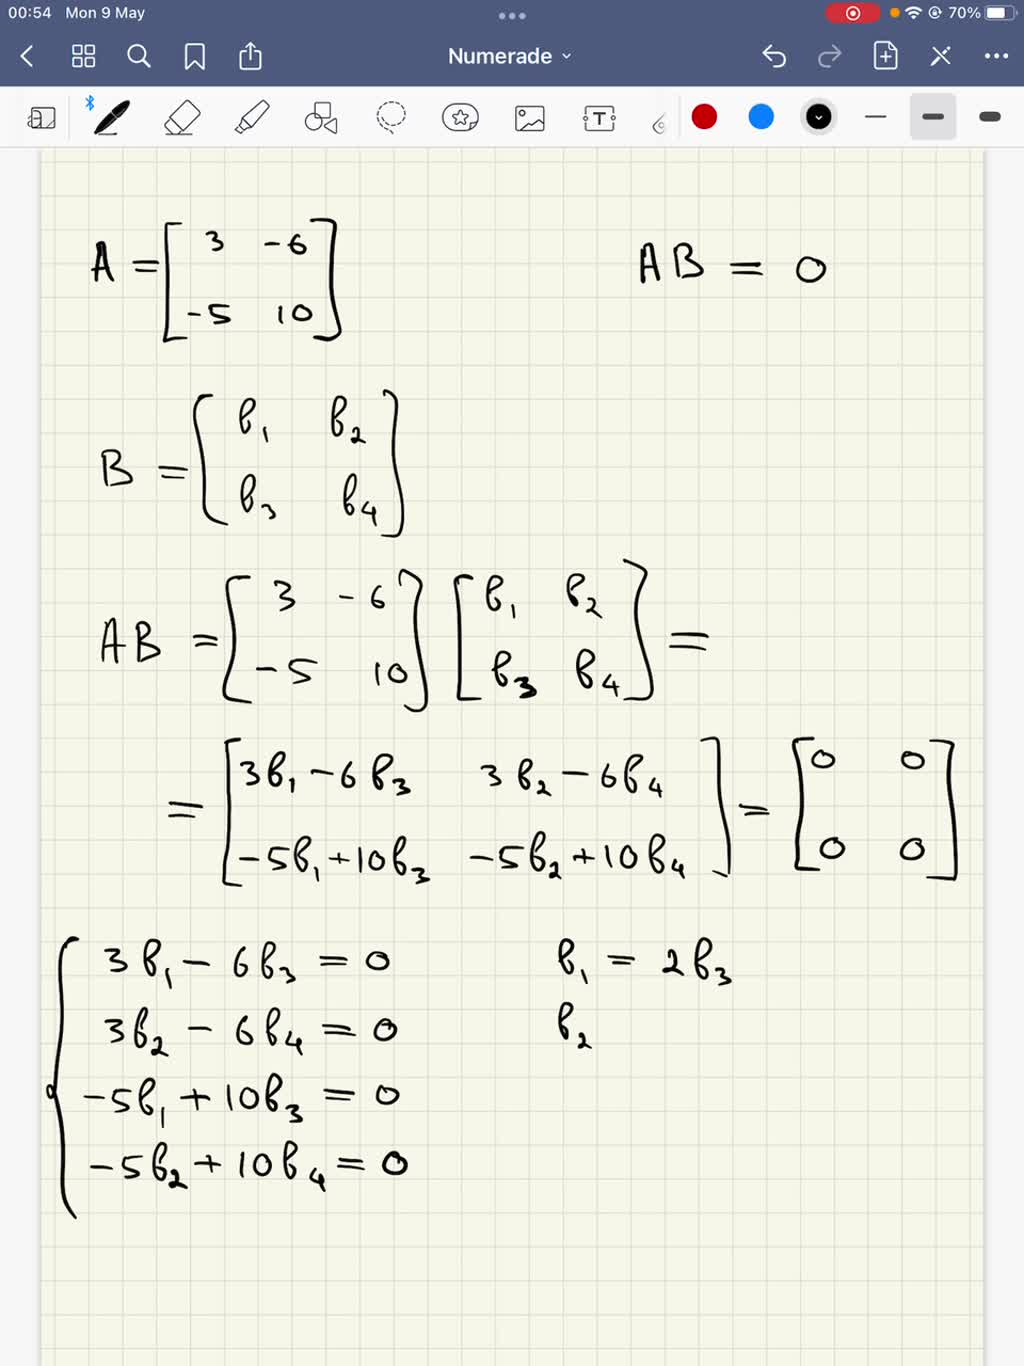 00:54 Mon 9 May 70%
Numerade
A = [ 3 -6
-5 10 ]
AB = 0
B = [ b₁ b₂
b₃ b₄ ]
AB = [ 3 -6
-5 10 ] [ b₁ b₂
b₃ b₄ ] =
= [ 3b₁ - 6b₃ 3b₂ - 6b₄
-5b₁ + 10b₃ -5b₂ + 10b₄ ] = [ 0 0
0 0 ]
3b₁ - 6b₃ = 0
3b₂ - 6b₄ = 0
-5b₁ + 10b₃ = 0
-5b₂ + 10b₄ = 0
b₁ = 2b₃
b₂